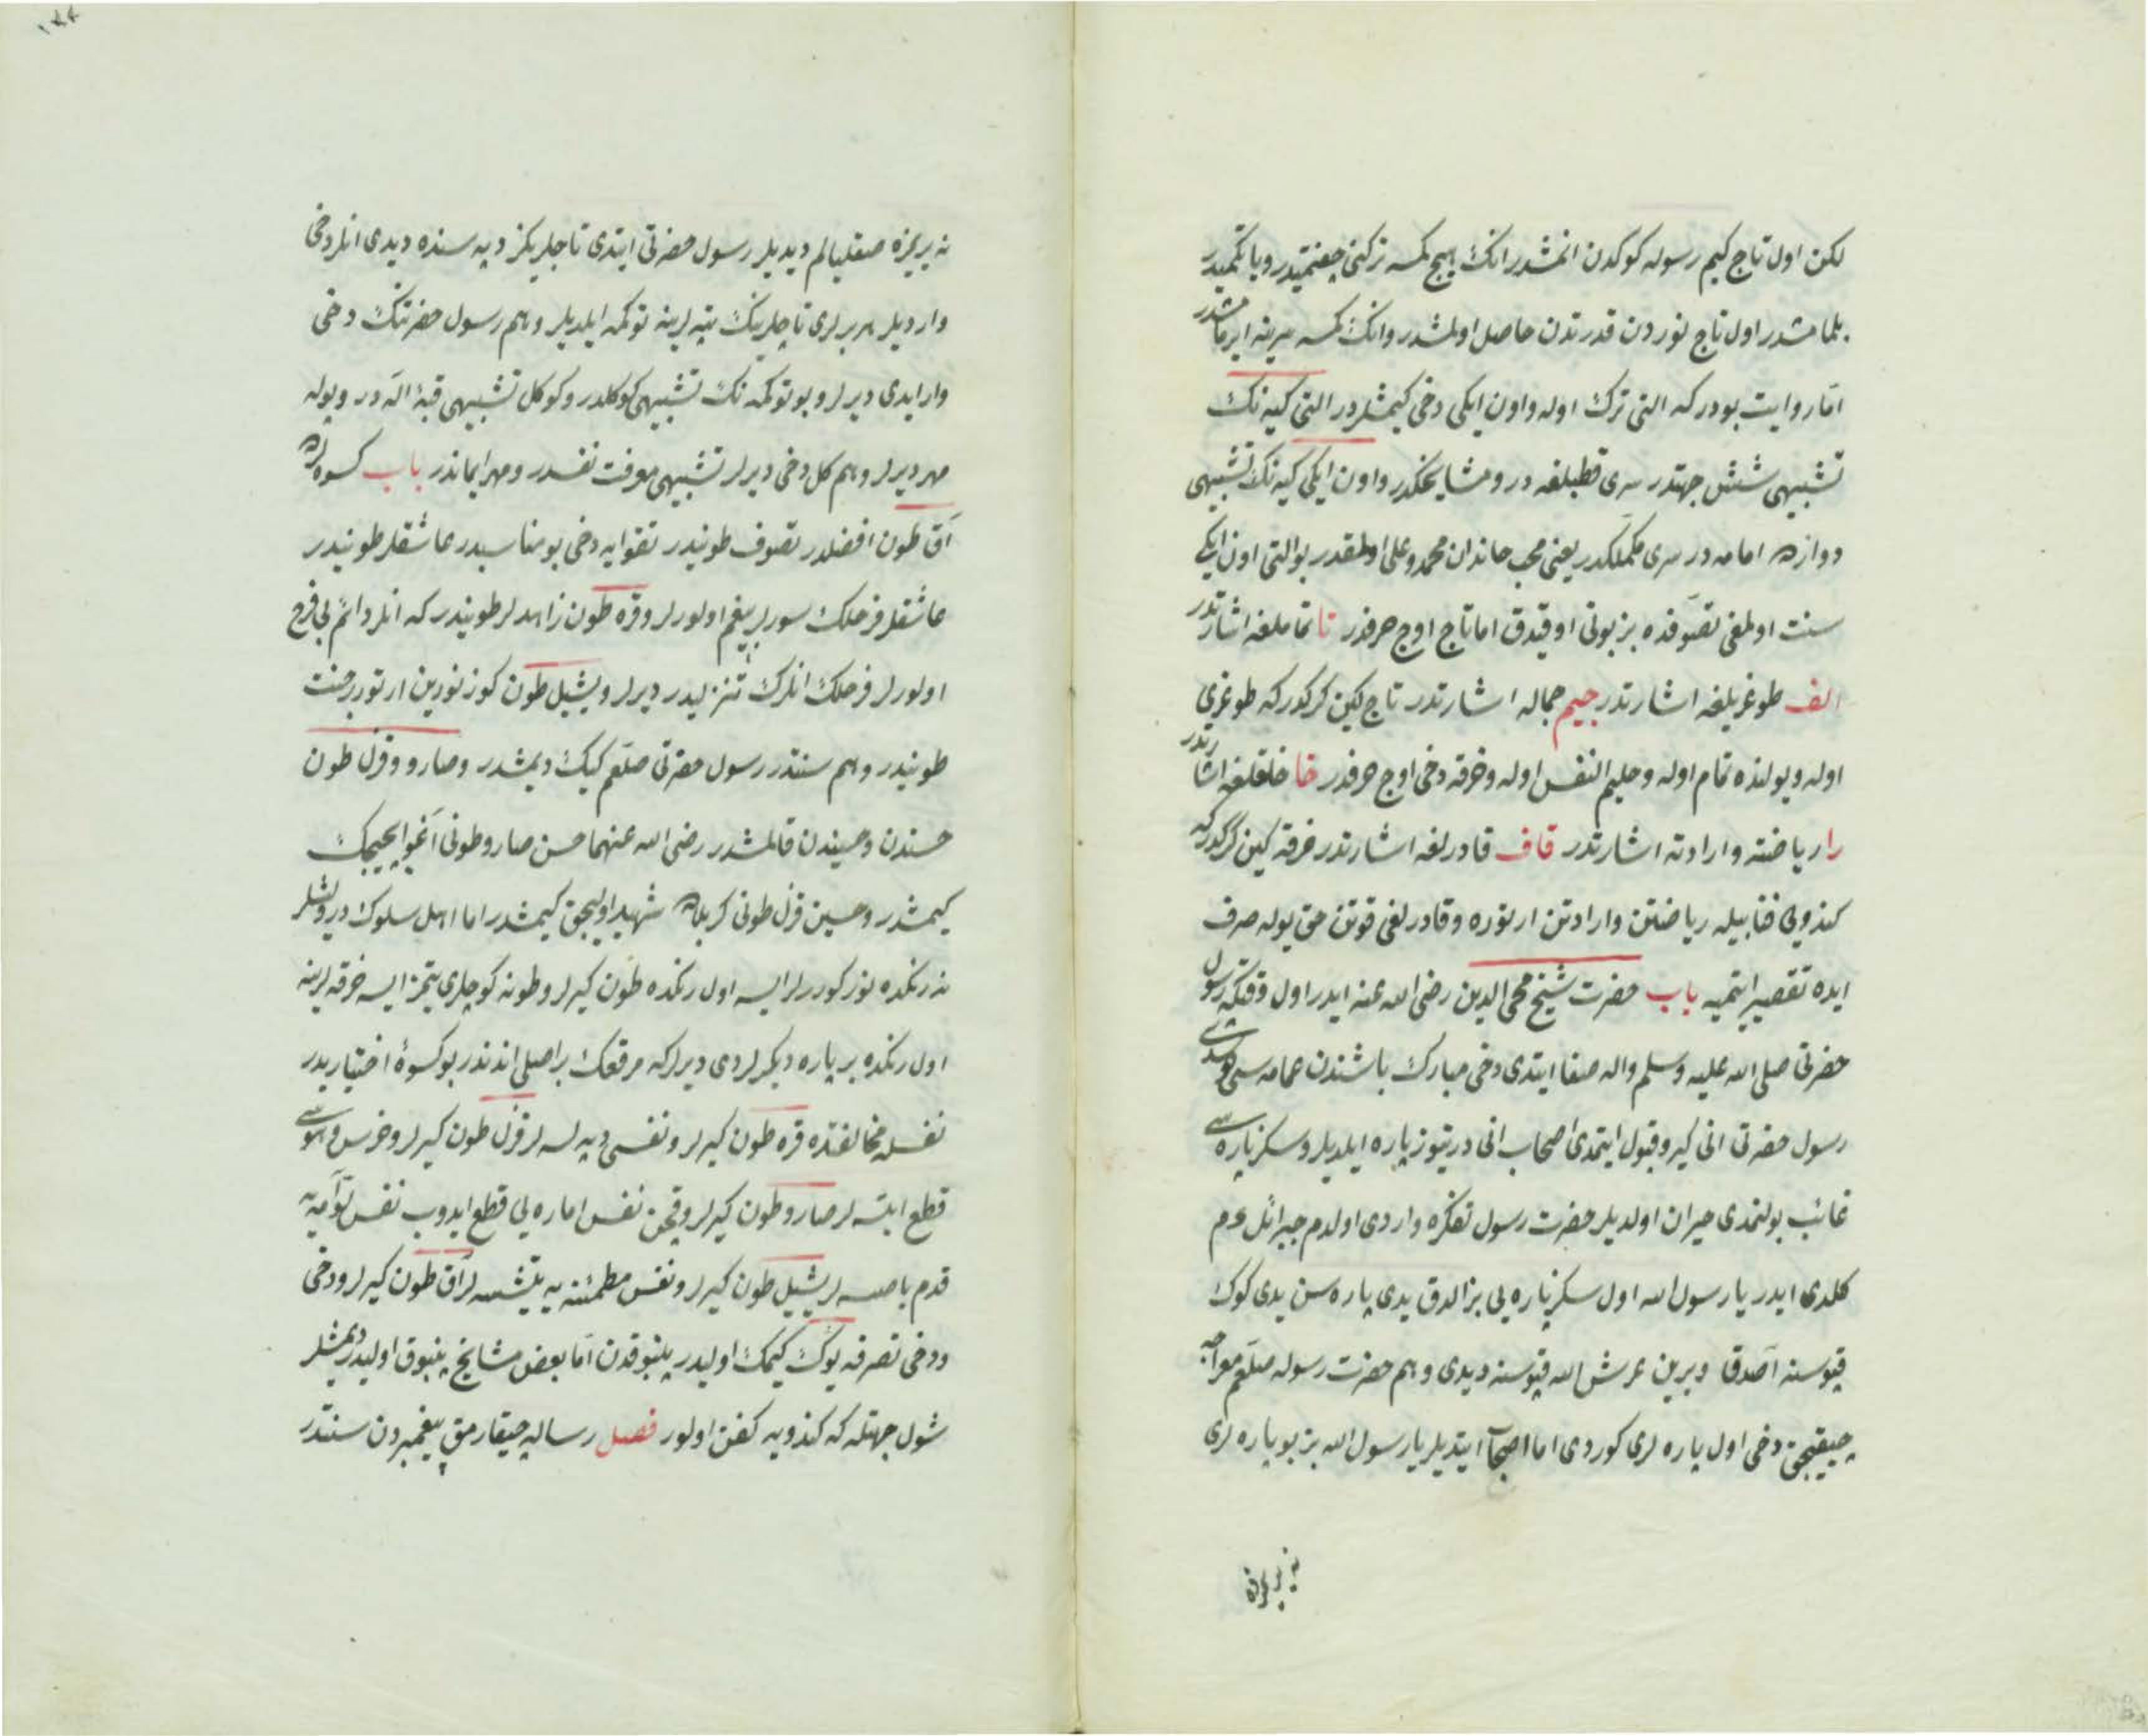 لكن اول تاج كيم رسوله كوكدن انمشدر انك هيچ كمسه تركنی چفتمیدر و یا تكمیدر
بلمامشدر اول تاج نوردن قدرتدن حاصل اولمشدر وانك كمسه سرینه ایرمامشدر
اما روایت بودركه التی ترك اوله واون ایكی دخی كیمشلردر التی كیه نك
تشبیهی شش جهتدر سری قطبلغه در و مشایخكدر واون ایكی كیه نك تشبیهی
دوازده امامه در سری مكملكدر یعنی محب خاندان محمد وعلی اولمقدر بو التی اون ایكی
سنت اولمغی تصوفده بز بونی اوقیدق اما تاج اوچ حرفدر تا تماملغه اشارتدر
الف طوغریلغه اشارتدر جیم جماله اشارتدر تاج لكین كركدركه طوغری
اوله ویولنده تمام اوله وحلیم النفس اوله وخرقه دخی اوچ حرفدر خا خلقلغه اشارتدر
را ریاضته وارادته اشارتدر قاف قادرلغه اشارتدر خرقه كین كركدركه
كندویی فنا بیله ریاضتن وارادتن ارتوره وقادرلغی قوتن حق یوله صرف
ایده تقصیر ایتمیه باب حضرت شیخ محی الدین رضی الله عنه ایدر اول وقتكه رسول
حضرتی صلی الله علیه وسلم واله صفا ایتدی دخی مبارك باشندن عمامه سی دوشدی
رسول حضرتی انی كیرو قبول ایتمدی اصحاب انی درتیوز پاره ایلدیلر وسكز پاره سی
غائب بولنمدی حیران اولدیلر حضرت رسول تفكره واردی اولدم جبرائل عم
كلدی ایدر یا رسول الله اول سكز پاره یی بز الدق یدی پاره سن یدی كوك
قپوسنه آصدق وبرین عرش الله قپوسنه دیدی وهم حضرت رسوله صلعم معراجه
چیقیجق دخی اول پاره لری كوردی اما اصحاب ایتدیلر یا رسول الله بز بو پاره لری
نه یریمزه
نه یریمزه صقلیالم دیدیلر رسول حضرتی ایتدی تاجلریكز دپه سنده دیدی انلر دخی
واردیلر هر بری تاجلرینك تپه لرینه توكمه ایلدیلر وهم رسول حضرتنك دخی
وار ایدی دیرلر و بو توكمه نك تشبیهی كوكلدر وكوكل تشبیهی قبهٔ اله در وبوله
مهر دیرلر وهم كل دخی دیرلر تشبیهی معرفت نفسدر ومهر ایماندر باب كسوه لرده
آق طون افضلدر تصوف طونیدر تقوایه دخی بو مناسبدر عاشقلر طونیدر
عاشقلر فرحلك سورلر بیغم اولورلر وقره طون زاهدلر طونیدر كه انلر دائم بی فرح
اولورلر فرحلك انلرك تنزلیدر دیرلر ویشیل طون كوز نورین ارتورر جنت
طونیدر وهم سنتدر رسول حضرتی صلعم كیك دیمشدر وصارو وقزل طون
حسندن وحسیندن قالمشدر رضی الله عنهما حسن صارو طونی آغو ایچیجك
كیمشدر وحسین قزل طونی كربلاده شهید اولیجق كیمشدر اما اهل سلوك ودرویشلر
نه رنكده نور كوررلر ایسه اول رنكده طون كیرلر وطونه كوجلری یتمز ایسه خرقه لرینه
اول رنكده بر پاره دیكرلردی دیرلركه مرقعك بر اصلی اندندر بو كسوهٔ اختیاریدر
نفسله مخالفتده قره طون كیرلر ونفسی دپه لسه لر قزل طون كیرلر وخرس وهوا سی
قطع ایتسه لر صارو طون كیرلر وقچن نفس اماره یی قطع ایدوب نفس لوامه یه
قدم باصسه لر یشیل طون كیرلر ونفس مطمئنه یه یتشسه لر آق طون كیرلر ودخی
ودخی تصرفه یوك كیمك اولیدر پنبوقدن اما بعض مشایخ پنبوق اولیدر دیمشلر
شول جهتله كه كندویه كفن اولور فصل رساله چیقارمق پیغمبردن سنتدر